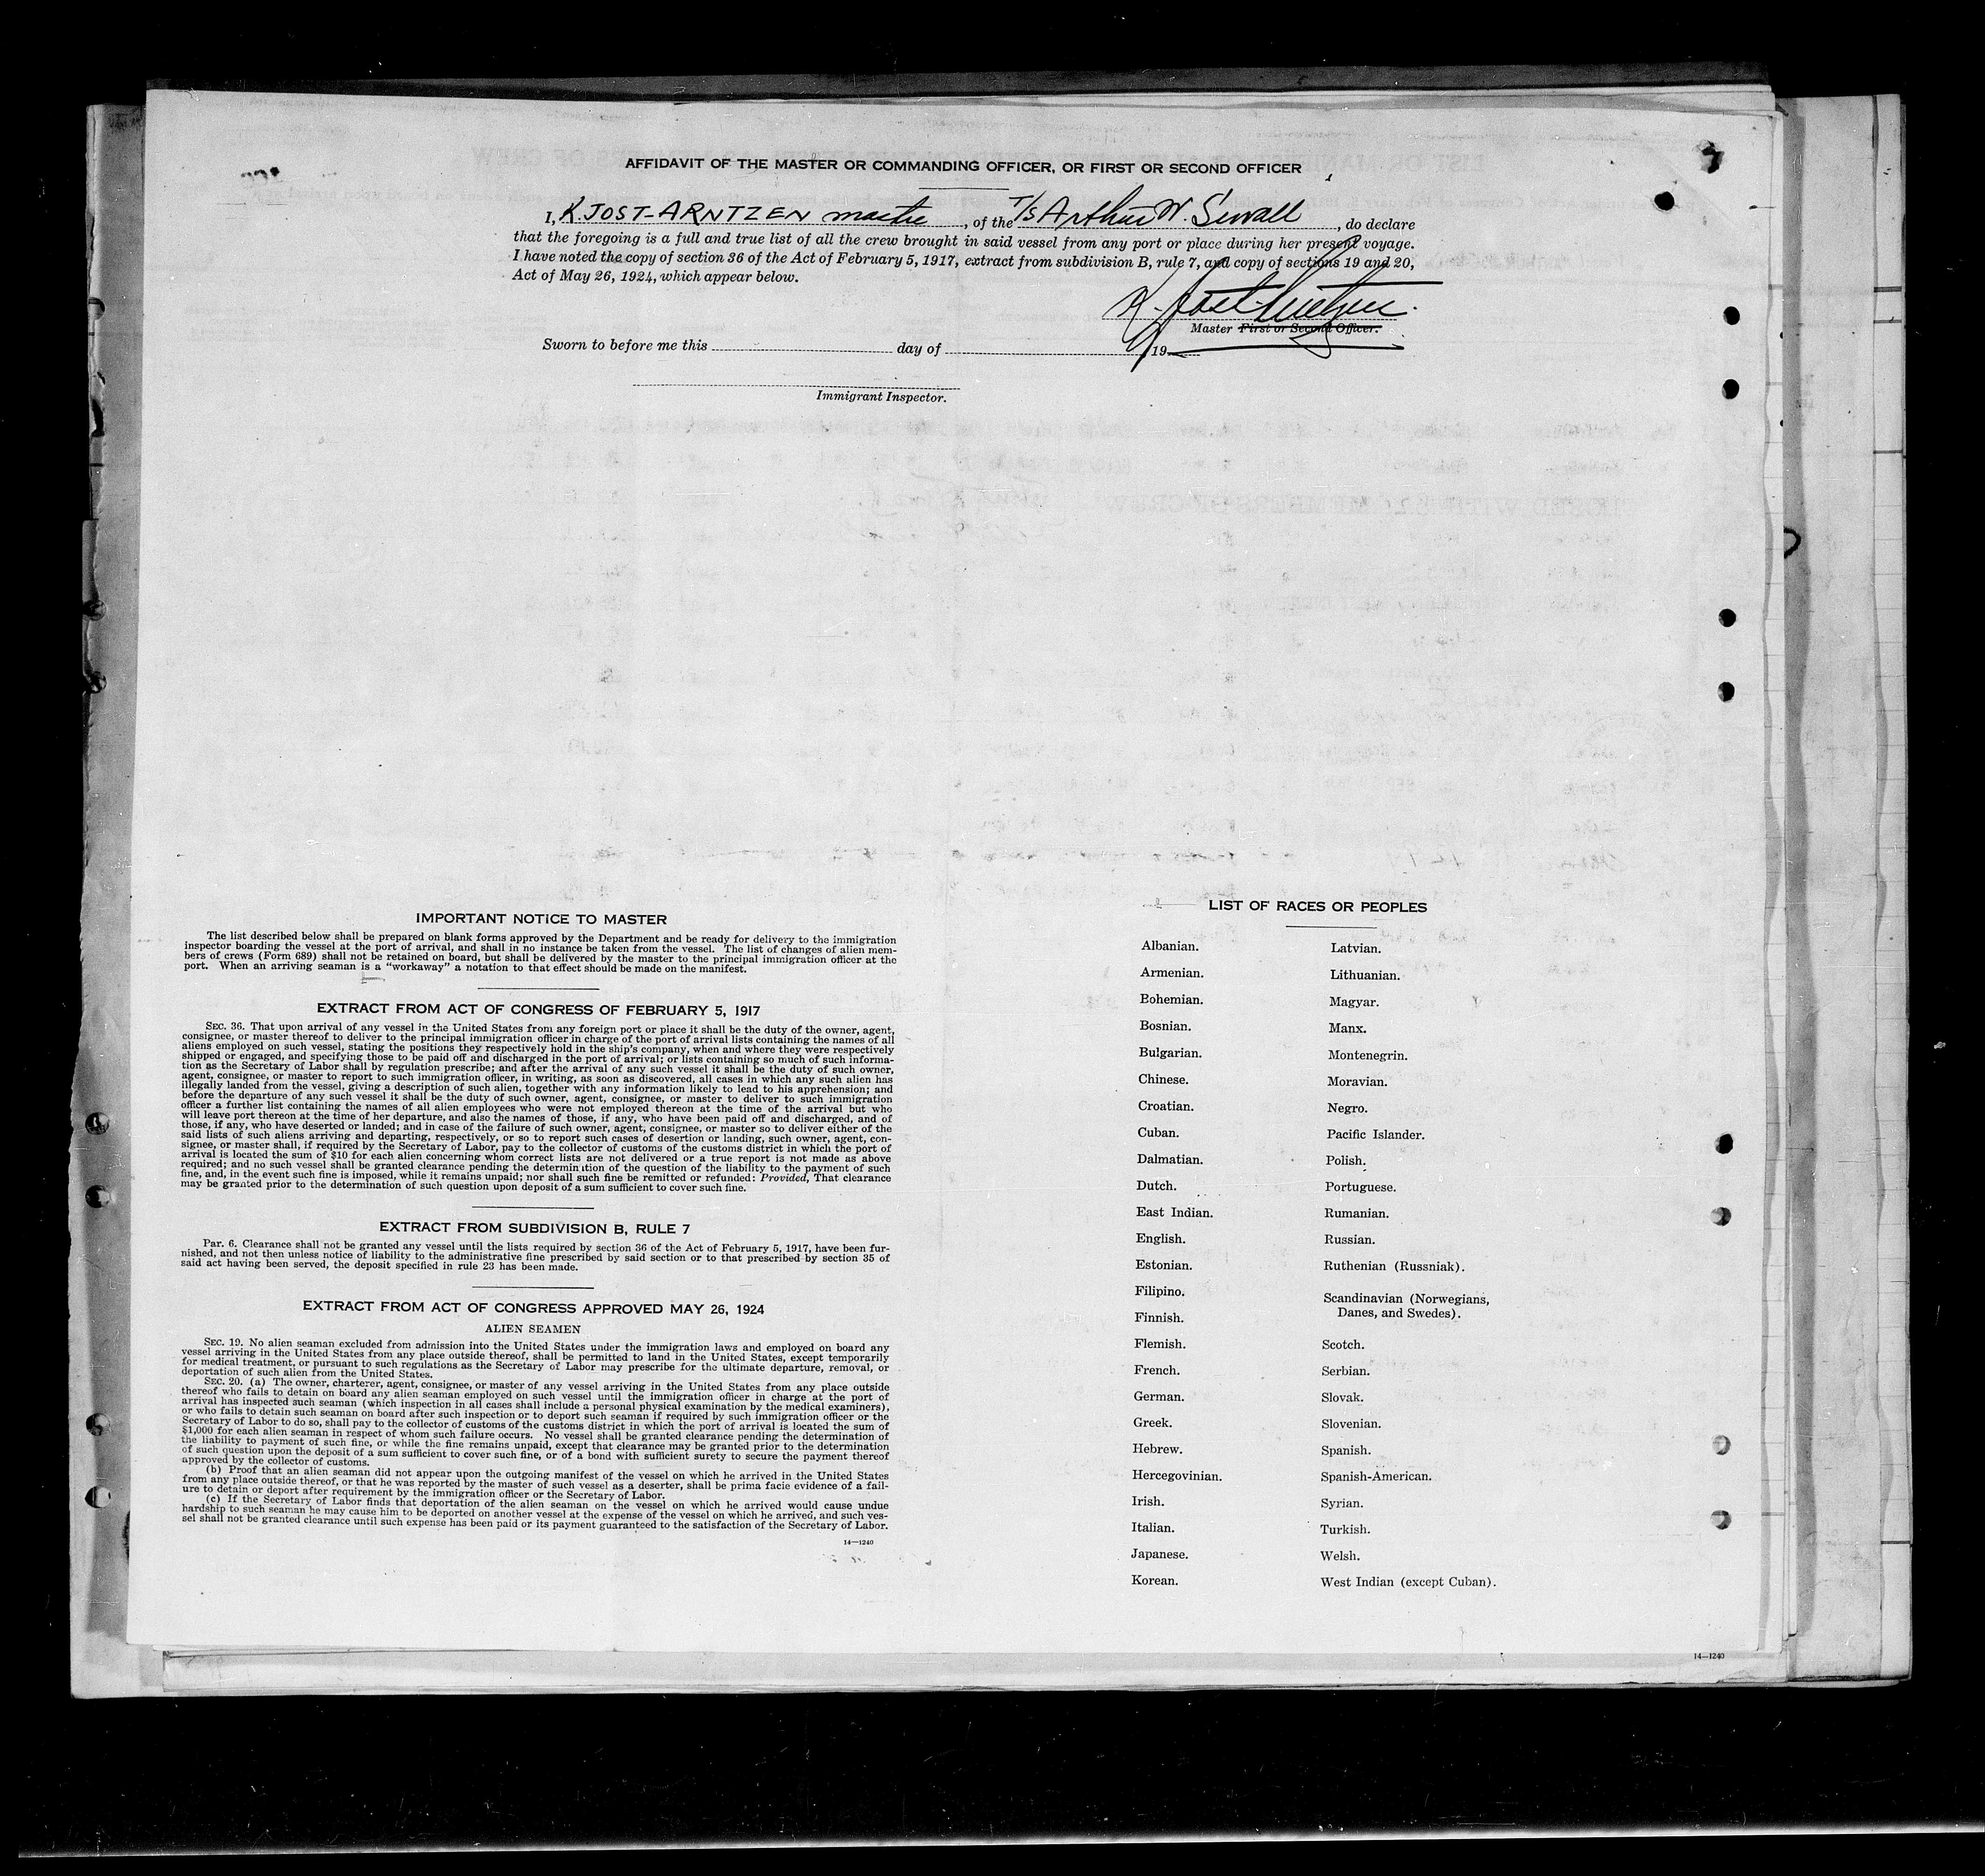 AFFIDAVIT OF THE MASTER OR COMMANDING OFFICER, OR FIRST OR SECOND OFFICER
I, K. JOST-ARNTZEN master, of the T/S Arthur W. Sewall, do declare
that the foregoing is a full and true list of all the crew brought in said vessel from any port or place during her present voyage.
I have noted the copy of section 36 of the Act of February 5, 1917, extract from subdivision B, rule 7, and copy of sections 19 and 20,
Act of May 26, 1924, which appear below.
K. Jost-Arntzen.
Master First or Second Officer.
Sworn to before me this day of , 19
Immigrant Inspector.
IMPORTANT NOTICE TO MASTER
The list described below shall be prepared on blank forms approved by the Department and be ready for delivery to the immigration
inspector boarding the vessel at the port of arrival, and shall in no instance be taken from the vessel. The list of changes of alien mem-
bers of crews (Form 689) shall not be retained on board, but shall be delivered by the master to the principal immigration officer at the
port. When an arriving seaman is a "workaway" a notation to that effect should be made on the manifest.
EXTRACT FROM ACT OF CONGRESS OF FEBRUARY 5, 1917
SEC. 36. That upon arrival of any vessel in the United States from any foreign port or place it shall be the duty of the owner, agent,
consignee, or master thereof to deliver to the principal immigration officer in charge of the port of arrival lists containing the names of all
aliens employed on such vessel, stating the positions they respectively hold in the ship's company, when and where they were respectively
shipped or engaged, and specifying those to be paid off and discharged in the port of arrival; or lists containing so much of such informa-
tion as the Secretary of Labor shall by regulation prescribe; and after the arrival of any such vessel it shall be the duty of such owner,
agent, consignee, or master to report to such immigration officer, in writing, as soon as discovered, all cases in which any such alien has
illegally landed from the vessel, giving a description of such alien, together with any information likely to lead to his apprehension; and
before the departure of any such vessel it shall be the duty of such owner, agent, consignee, or master to deliver to such immigration
officer a further list containing the names of all alien employees who were not employed thereon at the time of the arrival but who
will leave port thereon at the time of her departure, and also the names of those, if any, who have been paid off and discharged, and of
those, if any, who have deserted or landed; and in case of the failure of such owner, agent, consignee, or master so to deliver either of the
said lists of such aliens arriving and departing, respectively, or so to report such cases of desertion or landing, such owner, agent, con-
signee, or master shall, if required by the Secretary of Labor, pay to the collector of customs of the customs district in which the port of
arrival is located the sum of $10 for each alien concerning whom correct lists are not delivered or a true report is not made as above
required; and no such vessel shall be granted clearance pending the determination of the question of the liability to the payment of such
fine, and, in the event such fine is imposed, while it remains unpaid; nor shall such fine be remitted or refunded: Provided, That clearance
may be granted prior to the determination of such question upon deposit of a sum sufficient to cover such fine.
EXTRACT FROM SUBDIVISION B, RULE 7
Par. 6. Clearance shall not be granted any vessel until the lists required by section 36 of the Act of February 5, 1917, have been fur-
nished, and not then unless notice of liability to the administrative fine prescribed by said section or to that prescribed by section 35 of
said act having been served, the deposit specified in rule 23 has been made.
EXTRACT FROM ACT OF CONGRESS APPROVED MAY 26, 1924
ALIEN SEAMEN
SEC. 19. No alien seaman excluded from admission into the United States under the immigration laws and employed on board any
vessel arriving in the United States from any place outside thereof, shall be permitted to land in the United States, except temporarily
for medical treatment, or pursuant to such regulations as the Secretary of Labor may prescribe for the ultimate departure, removal, or
deportation of such alien from the United States.
SEC. 20. (a) The owner, charterer, agent, consignee, or master of any vessel arriving in the United States from any place outside
thereof who fails to detain on board any alien seaman employed on such vessel until the immigration officer in charge at the port of
arrival has inspected such seaman (which inspection in all cases shall include a personal physical examination by the medical examiners),
or who fails to detain such seaman on board after such inspection or to deport such seaman if required by such immigration officer or the
Secretary of Labor to do so, shall pay to the collector of customs of the customs district in which the port of arrival is located the sum of
$1,000 for each alien seaman in respect of whom such failure occurs. No vessel shall be granted clearance pending the determination of
the liability to payment of such fine, or while the fine remains unpaid, except that clearance may be granted prior to the determination
of such question upon the deposit of a sum sufficient to cover such fine, or of a bond with sufficient surety to secure the payment thereof
approved by the collector of customs.
(b) Proof that an alien seaman did not appear upon the outgoing manifest of the vessel on which he arrived in the United States
from any place outside thereof, or that he was reported by the master of such vessel as a deserter, shall be prima facie evidence of a fail-
ure to detain or deport after requirement by the immigration officer or the Secretary of Labor.
(c) If the Secretary of Labor finds that deportation of the alien seaman on the vessel on which he arrived would cause undue
hardship to such seaman he may cause him to be deported on another vessel at the expense of the vessel on which he arrived, and such ves-
sel shall not be granted clearance until such expense has been paid or its payment guaranteed to the satisfaction of the Secretary of Labor.
14—1240
LIST OF RACES OR PEOPLES
Albanian.
Armenian.
Bohemian.
Bosnian.
Bulgarian.
Chinese.
Croatian.
Cuban.
Dalmatian.
Dutch.
East Indian.
English.
Estonian.
Filipino.
Finnish.
Flemish.
French.
German.
Greek.
Hebrew.
Hercegovinian.
Irish.
Italian.
Japanese.
Korean.
Latvian.
Lithuanian.
Magyar.
Manx.
Montenegrin.
Moravian.
Negro.
Pacific Islander.
Polish.
Portuguese.
Rumanian.
Russian.
Ruthenian (Russniak).
Scandinavian (Norwegians,
Danes, and Swedes).
Scotch.
Serbian.
Slovak.
Slovenian.
Spanish.
Spanish-American.
Syrian.
Turkish.
Welsh.
West Indian (except Cuban).
14—1240